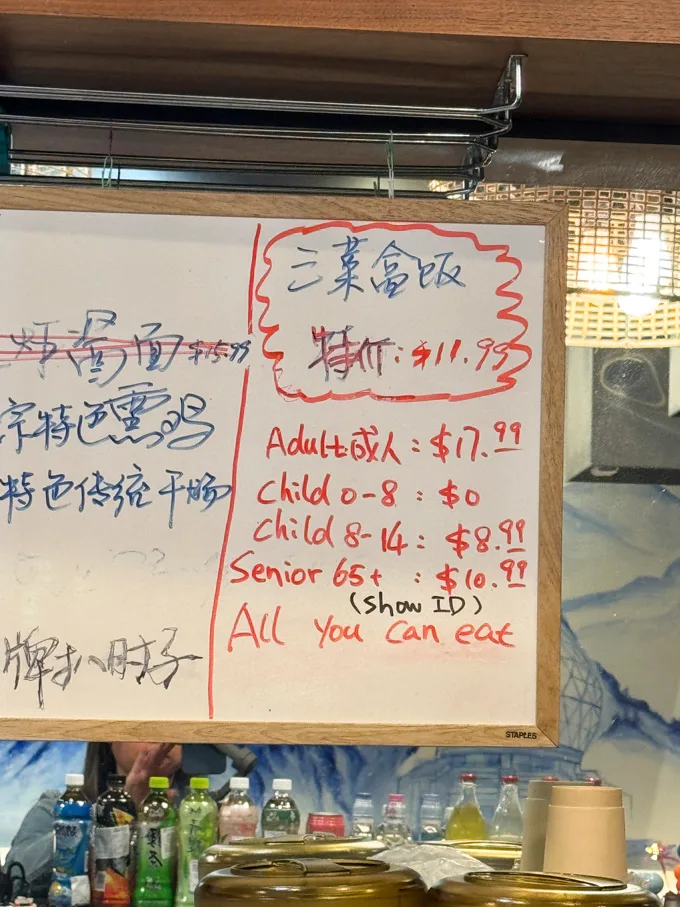 三菜盒饭
特价: $11.99
Adult成人: $17.99
Child 0-8 : $0
Child 8-14: $8.99
Senior 65+ : $10.99
(Show ID)
All you can eat
面 $15.99
宗特色熏鸡
特色传统干肠
牌扒肘子
STAPLES